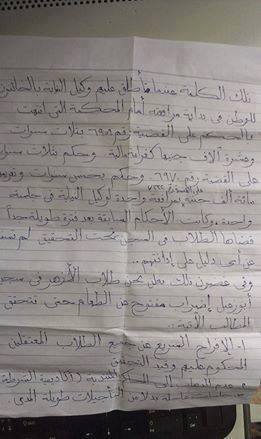 تلك الكلمة عندما أطلق عليهم وكيل النيابة بالخائنين
للوطن في بداية مرافعته أمام المحكمة التي انتهت
بالحكم على القضية رقم بثلاث سنوات
وعشرة آلاف جنيها كغرامة مالية وحكم بثلاث سنوات
على القضية رقم ٦٩٧ وحكم بخمس سنوات
مائة ألف جنيه بمرافعة واحدة لوكيل النيابة في جلسة
واحدة. وكانت الأحكام السابقة بعد فترة طويلة جداً
قضاها الطلاب في السجن تحت التحقيق لم
عن أي دليل على إدانتهم..
وفي غضون ذلك يعلن نحن طلاب الأزهر في سجن
أبو زعبل إضراب مفتوح عن الطعام حتى تتحقق
المطالب الآتية:
١- الإفراج السريع عن جميع الطلاب المعتقلين
المحكوم عليهم وقيد التحقيق
أكاديمية الشرطة
بدلا من التأجيلات طويلة المدى.